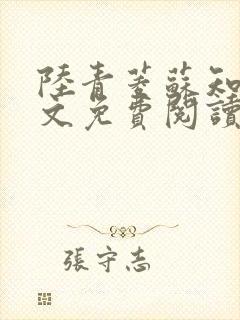 陸青葶蘇知
文免費閱讀
張守志